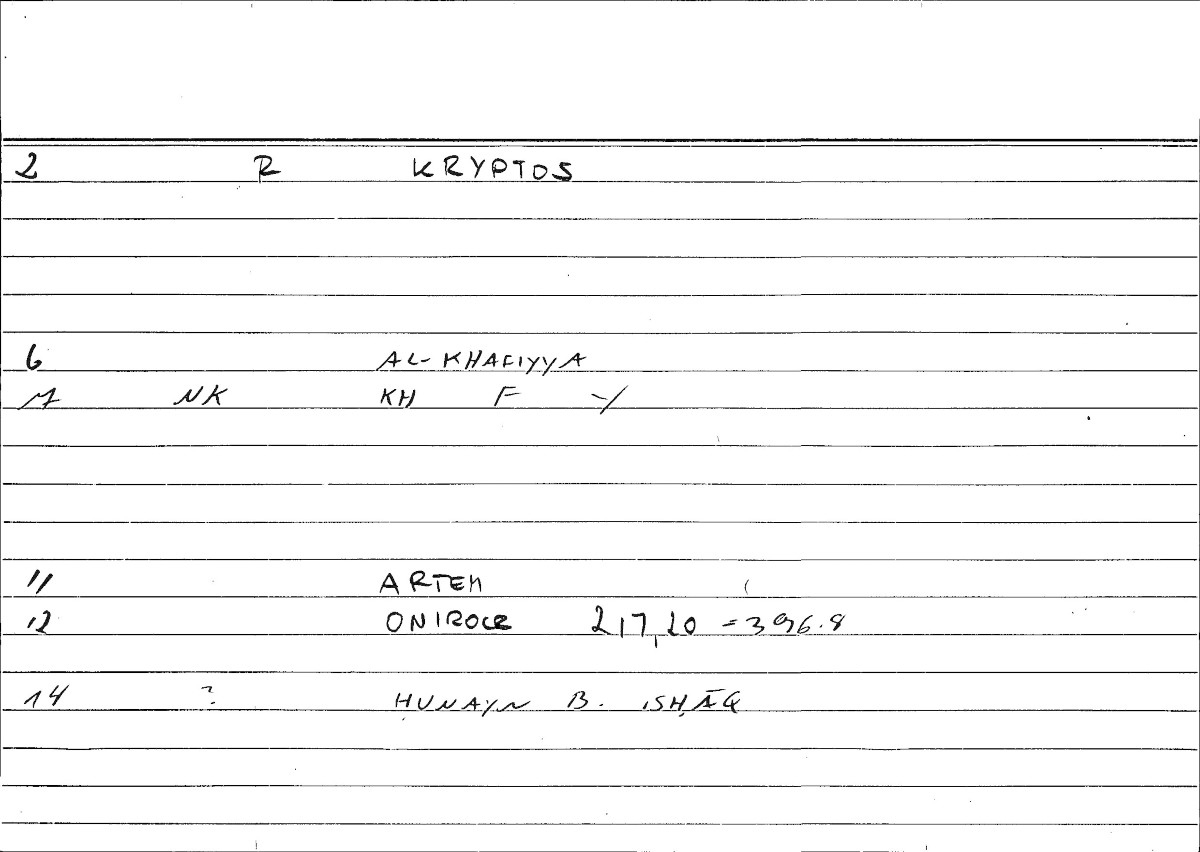 2 R KRYPTOS
6 AL-KHAFIYYA
7 NK KH F -Y
11 ARTEM
12 ONIROCR 217,20 = 396.8
14 ? ḤUNAYN B. ISḤĀQ